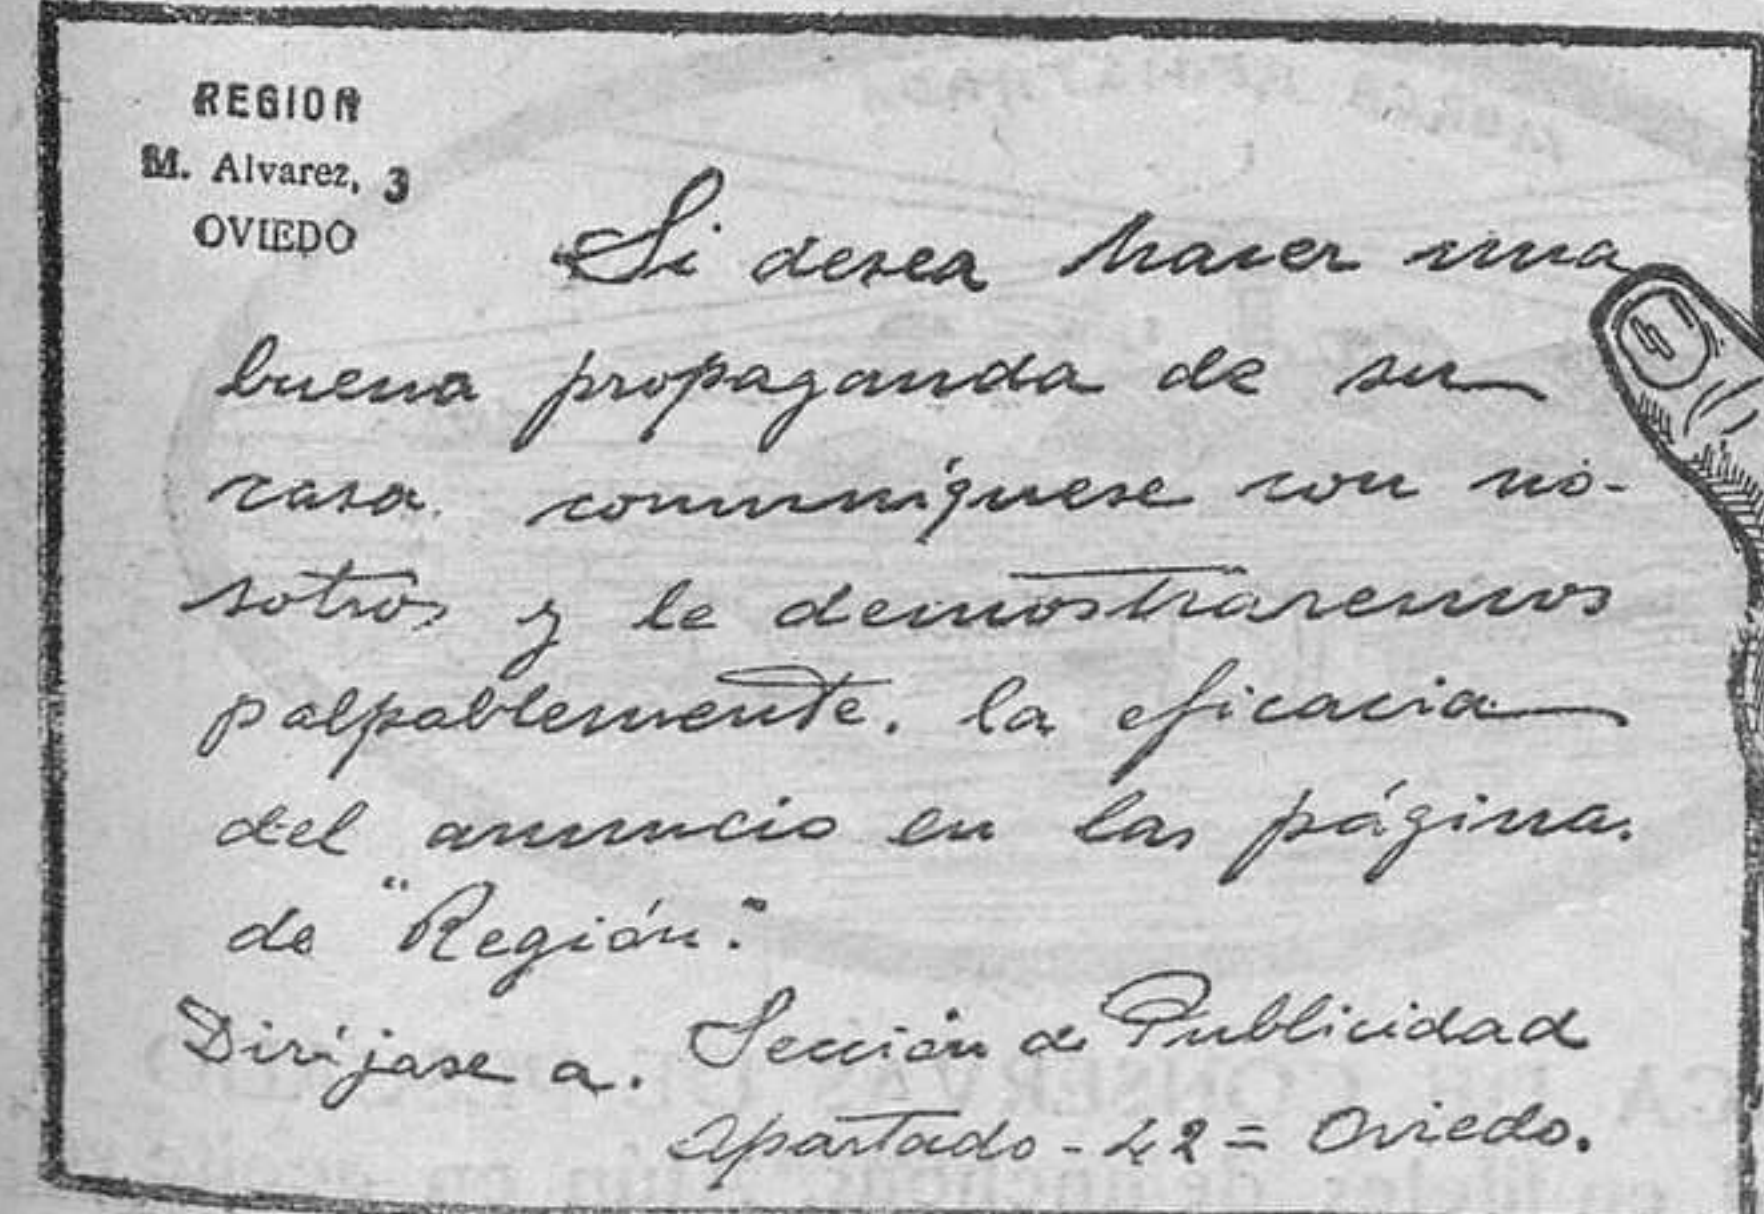 REGION
M. Alvarez, 3
OVIEDO
Si desea hacer una
buena propaganda de su
casa. comuníquese con no-
sotros y le demostraremos
palpablemente. la eficacia
del anuncio en las páginas
de "Región".
Diríjase a. Sección de Publicidad
apartado - 42 = Oviedo.